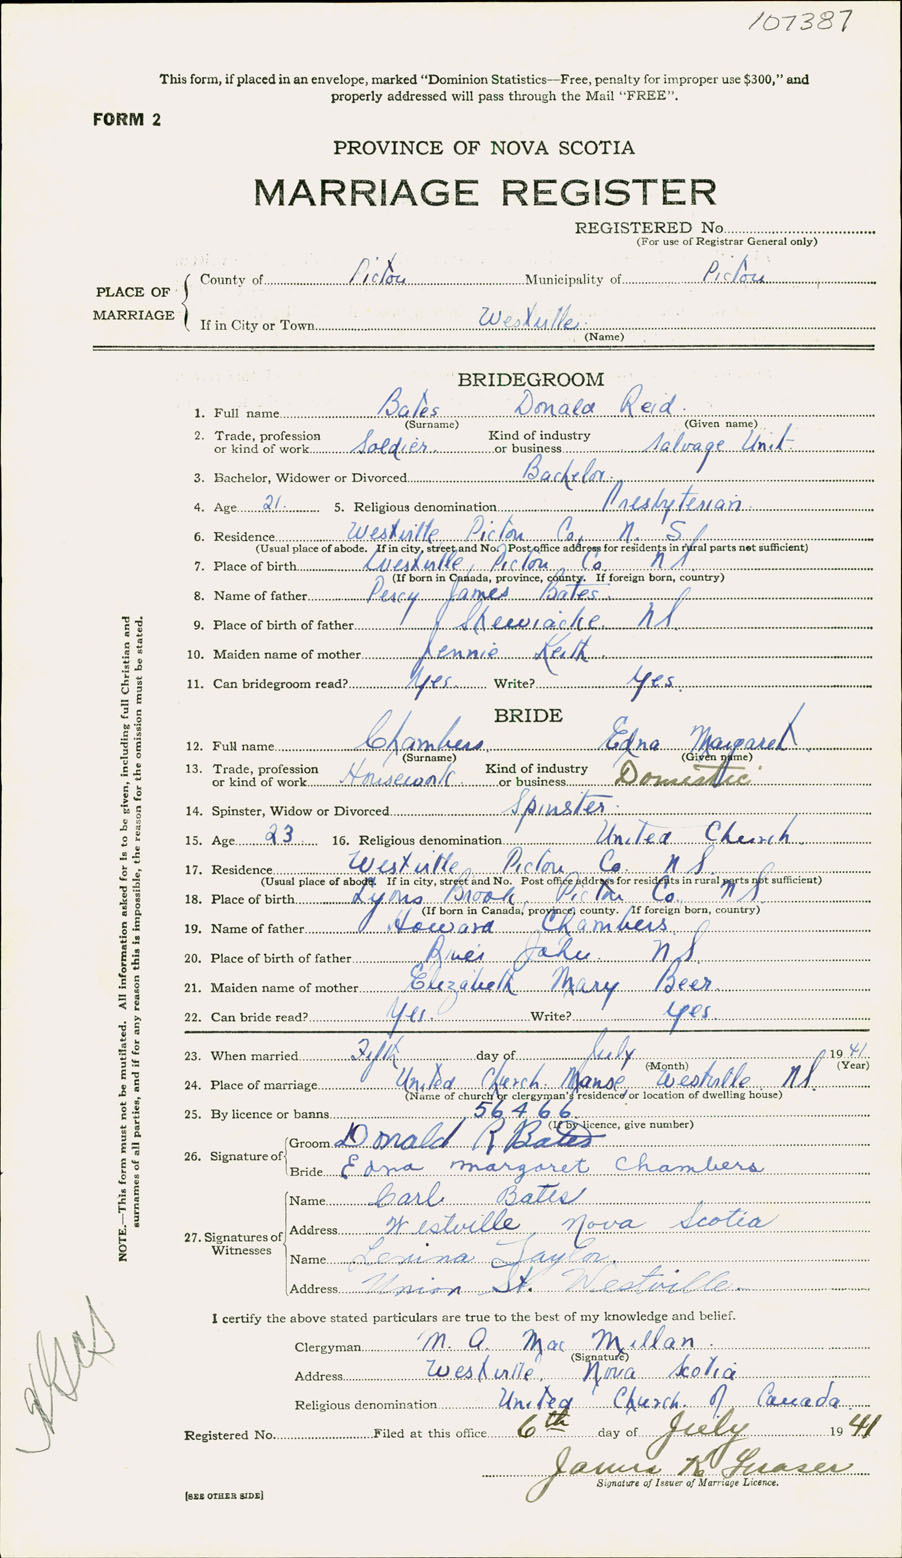 107387
This form, if placed in an envelope, marked "Dominion Statistics—Free, penalty for improper use $300," and
properly addressed will pass through the Mail "FREE".
FORM 2
PROVINCE OF NOVA SCOTIA
MARRIAGE REGISTER
REGISTERED No.
(For use of Registrar General only)
PLACE OF MARRIAGE
County of Pictou Municipality of Pictou
If in City or Town Westville
(Name)
BRIDEGROOM
1. Full name Bates Donald Reid
(Surname) (Given name)
2. Trade, profession or kind of work Soldier Kind of industry or business Salvage Unit
3. Bachelor, Widower or Divorced Bachelor
4. Age 21 5. Religious denomination Presbyterian
6. Residence Westville Pictou Co. N. S.
(Usual place of abode. If in city, street and No. Post office address for residents in rural parts not sufficient)
7. Place of birth Westville, Pictou Co. N S
(If born in Canada, province, county. If foreign born, country)
8. Name of father Percy James Bates
9. Place of birth of father Stewiacke NS
10. Maiden name of mother Jennie Keith
11. Can bridegroom read? Yes. Write? Yes.
BRIDE
12. Full name Chambers Edna Margaret
(Surname) (Given name)
13. Trade, profession or kind of work Housework Kind of industry or business Domestic
14. Spinster, Widow or Divorced Spinster
15. Age 23 16. Religious denomination United Church
17. Residence Westville Pictou Co N S.
(Usual place of abode. If in city, street and No. Post office address for residents in rural parts not sufficient)
18. Place of birth Lyons Brook, Pictou Co. N S
(If born in Canada, province, county. If foreign born, country)
19. Name of father Howard Chambers
20. Place of birth of father River John N S
21. Maiden name of mother Elizabeth Mary Beer
22. Can bride read? Yes. Write? Yes.
23. When married Fifth day of July 1941
(Month) (Year)
24. Place of marriage United Church Manse, Westville NS
(Name of church or clergyman's residence or location of dwelling house)
25. By licence or banns 56466
(If by licence, give number)
26. Signature of Groom Donald R Bates
Bride Edna Margaret Chambers
27. Signatures of Witnesses
Name Carl Bates
Address Westville Nova Scotia
Name Taylor
Address Union St. Westville
I certify the above stated particulars are true to the best of my knowledge and belief.
Clergyman M. A. Mac Millan
(Signature)
Address Westville, Nova Scotia
Religious denomination United Church of Canada
Registered No. Filed at this office 6th day of July 1941
James K Fraser
Signature of Issuer of Marriage Licence.
[SEE OTHER SIDE]
NOTE.—This form must not be mutilated. All information asked for is to be given, including full Christian and
surnames of all parties, and if for any reason this is impossible, the reason for the omission must be stated.